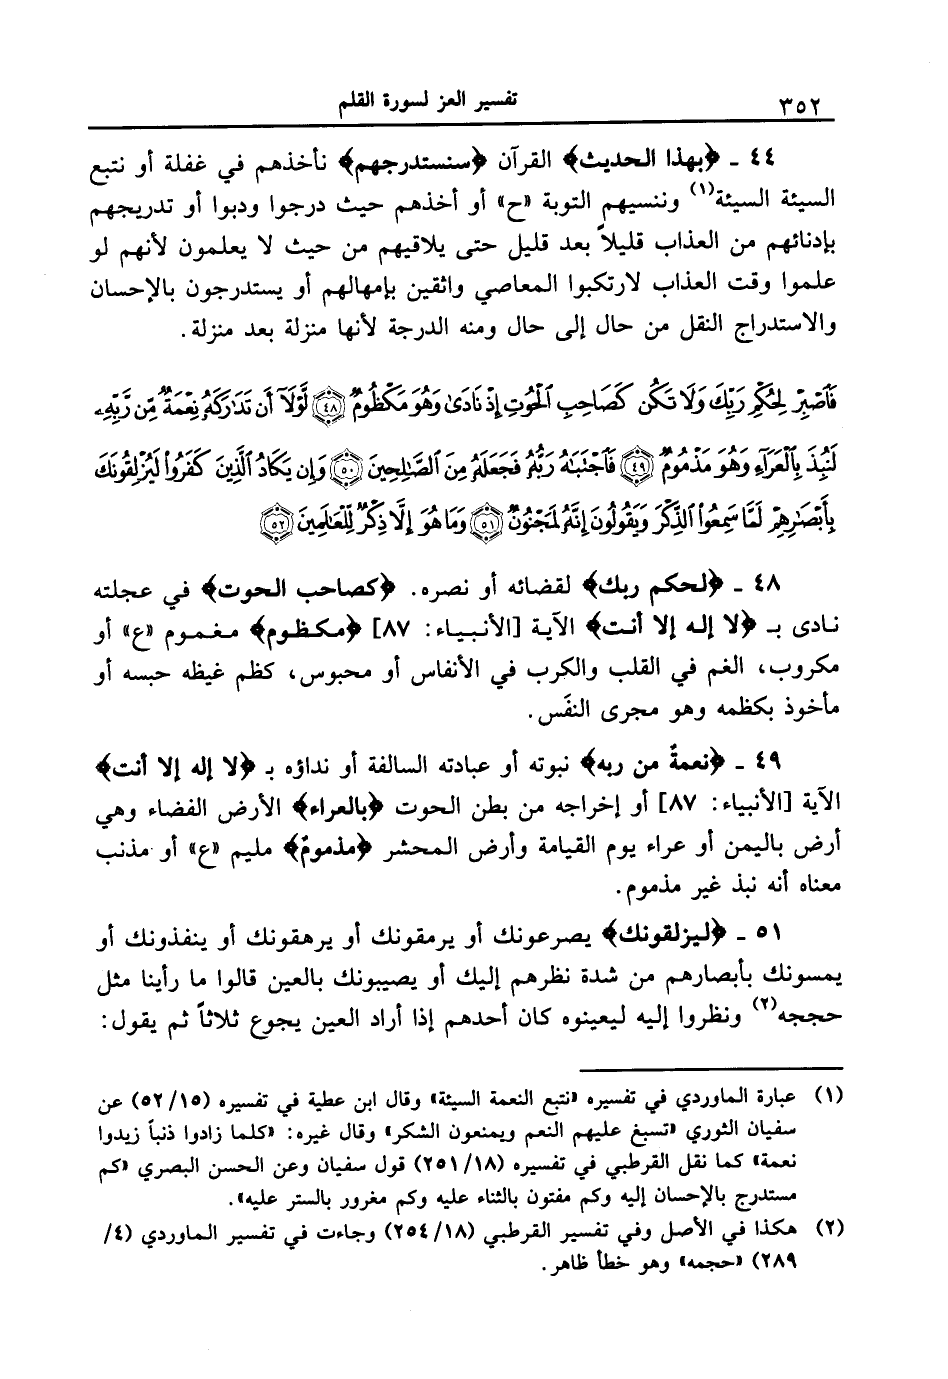 ٣٥٢
تفسير العز لسورة القلم
٤٤ ـ ﴿بهذا الحديث﴾ القرآن ﴿سنستدرجهم﴾ نأخذهم في غفلة أو نتبع
السيئة السيئة(١) وننسيهم التوبة «ح» أو أخذهم حيث درجوا ودبوا أو تدريجهم
بإدنائهم من العذاب قليلاً بعد قليل حتى يلاقيهم من حيث لا يعلمون لأنهم لو
علموا وقت العذاب لارتكبوا المعاصي واثقين بإمهالهم أو يستدرجون بالإحسان
والاستدراج النقل من حال إلى حال ومنه الدرجة لأنها منزلة بعد منزلة.
فَاصْبِرْ لِحُكْمِ رَبِّكَ وَلَا تَكُن كَصَاحِبِ الْحُوتِ إِذْ نَادَىٰ وَهُوَ مَكْظُومٌ ٤٨ لَّوْلَا أَن تَدَارَكَهُ نِعْمَةٌ مِّن رَّبِّهِ
لَنُبِذَ بِالْعَرَاءِ وَهُوَ مَذْمُومٌ ٤٩ فَاجْتَبَاهُ رَبُّهُ فَجَعَلَهُ مِنَ الصَّالِحِينَ ٥٠ وَإِن يَكَادُ الَّذِينَ كَفَرُوا لَيُزْلِقُونَكَ
بِأَبْصَارِهِمْ لَمَّا سَمِعُوا الذِّكْرَ وَيَقُولُونَ إِنَّهُ لَمَجْنُونٌ ٥١ وَمَا هُوَ إِلَّا ذِكْرٌ لِّلْعَالَمِينَ ٥٢
٤٨ ـ ﴿لحكم ربك﴾ لقضائه أو نصره. ﴿كصاحب الحوت﴾ في عجلته
نادى بـ ﴿لا إله إلا أنت﴾ الآية [الأنبياء: ٨٧] ﴿مكظوم﴾ مغموم «ع» أو
مكروب، الغم في القلب والكرب في الأنفاس أو محبوس، كظم غيظه حبسه أو
مأخوذ بكظمه وهو مجرى النفَس.
٤٩ ـ ﴿نعمةٌ من ربه﴾ نبوته أو عبادته السالفة أو نداؤه بـ ﴿لا إله إلا أنت﴾
الآية [الأنبياء: ٨٧] أو إخراجه من بطن الحوت ﴿بالعراء﴾ الأرض الفضاء وهي
أرض باليمن أو عراء يوم القيامة وأرض المحشر ﴿مذمومٌ﴾ مليم «ع» أو مذنب
معناه أنه نبذ غير مذموم.
٥١ ـ ﴿ليزلقونك﴾ يصرعونك أو يرمقونك أو يرهقونك أو ينفذونك أو
يمسونك بأبصارهم من شدة نظرهم إليك أو يصيبونك بالعين قالوا ما رأينا مثل
حججه(٢) ونظروا إليه ليعينوه كان أحدهم إذا أراد العين يجوع ثلاثاً ثم يقول:
(١) عبارة الماوردي في تفسيره «نتبع النعمة السيئة» وقال ابن عطية في تفسيره (٥٢/١٥) عن
سفيان الثوري «تسبغ عليهم النعم ويمنعون الشكر» وقال غيره: «كلما زادوا ذنباً زيدوا
نعمة» كما نقل القرطبي في تفسيره (٢٥١/١٨) قول سفيان وعن الحسن البصري «كم
مستدرج بالإحسان إليه وكم مفتون بالثناء عليه وكم مغرور بالستر عليه».
(٢) هكذا في الأصل وفي تفسير القرطبي (٢٥٤/١٨) وجاءت في تفسير الماوردي (٤/
٢٨٩) «حجمه» وهو خطأ ظاهر.